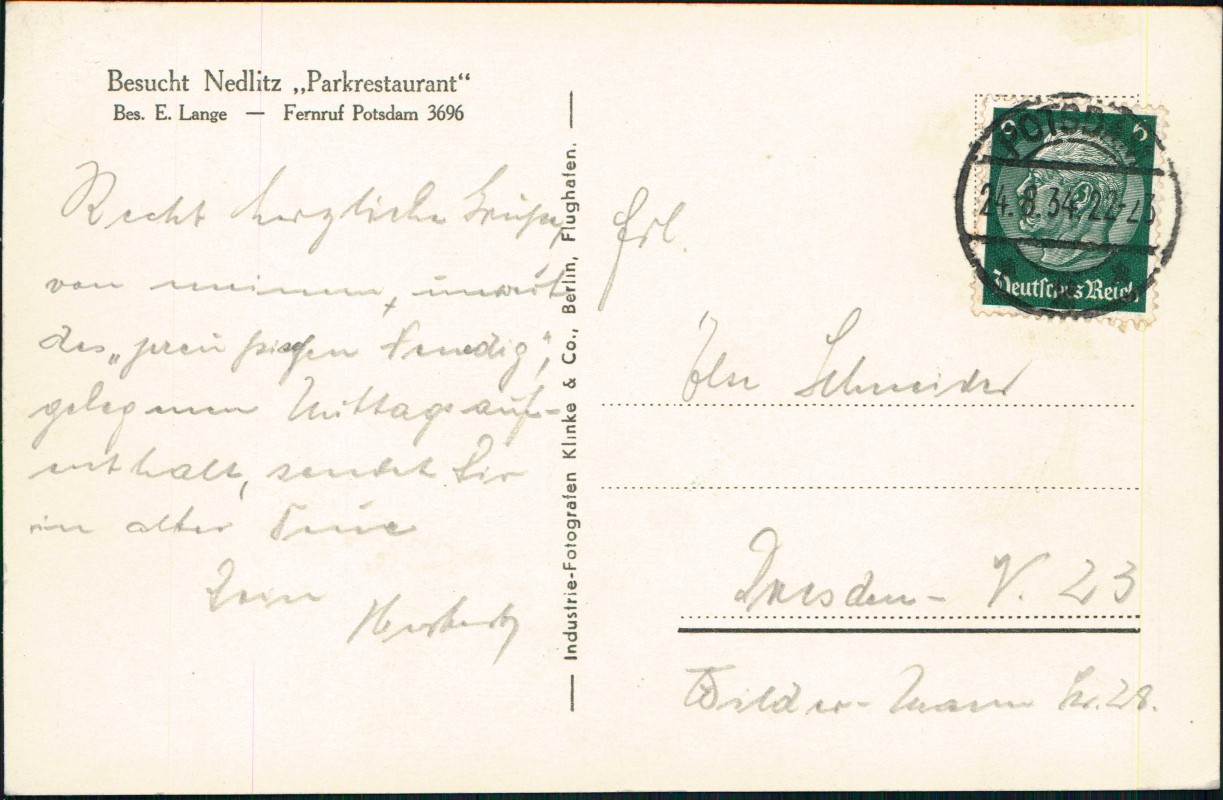 Besucht Nedlitz „Parkrestaurant“
Bes. E. Lange — Fernruf Potsdam 3696
Recht herzliche Grüße,
von meinem, unweit
des „preußischen Venedig“,
gelegenen Mittagsauf-
enthalt, sendet Dir
in alter Treue
Dein
Herbert
Industrie-Fotografen Klinke & Co., Berlin, Flughafen.
POTSDAM
24.8.34.22-23
6 6
Deutsches Reich
Frl.
Ilse Schneider
Dresden- N. 23
Wilder-Mann Str. 28.